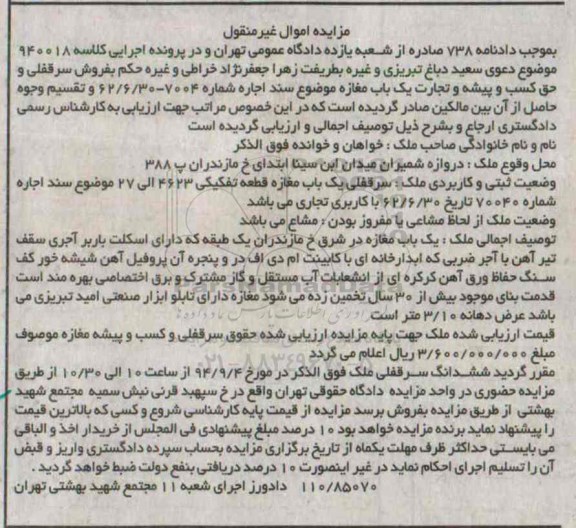 مزایده اموال غیرمنقول
بموجب دادنامه ۷۳۸ صادره از شعبه یازده دادگاه عمومی تهران و در پرونده اجرایی کلاسه ۹۴۰۰۱۸
موضوع دعوی سعید دباغ تبریزی و غیره بطرفیت زهرا جعفرنژاد خراطی و غیره حکم بفروش سرقفلی و
حق کسب و پیشه و تجارت یک باب مغازه موضوع سند اجاره شماره ۷۰۰۴-۶۲/۶/۳۰ و تقسیم وجوه
حاصل از آن بین مالکین صادر گردیده است که در این خصوص مراتب جهت ارزیابی به کارشناس رسمی
دادگستری ارجاع و بشرح ذیل توصیف اجمالی و ارزیابی گردیده است
نام و نام خانوادگی صاحب ملک : خواهان و خوانده فوق الذکر
محل وقوع ملک : دروازه شمیران میدان ابن سینا ابتدای خ مازندران پ ۳۸۸
وضعیت ثبتی و کاربردی ملک : سرقفلی یک باب مغازه قطعه تفکیکی ۴۶۲۳ الی ۲۷ موضوع سند اجاره
شماره ۷۰۰۴۰ تاریخ ۶۲/۶/۳۰ با کاربری تجاری می باشد
وضعیت ملک از لحاظ مشاعی یا مفروز بودن : مشاع می باشد
توصیف اجمالی ملک : یک باب مغازه در شرق خ مازندران یک طبقه که دارای اسکلت باربر آجری سقف
تیر آهن با آجر ضربی که ابدارخانه ای با کابینت ام دی اف در و پنجره آن پروفیل آهن شیشه خور کف
سنگ حفاظ ورق آهن کرکره ای از انشعابات آب مستقل و گاز مشترک و برق اختصاصی بهره مند است
قدمت بنای موجود بیش از ۳۰ سال تخمین زده می شود مغازه دارای تابلو ابزار صنعتی امید تبریزی می
باشد عرض دهانه ۳/۱۰ متر است
قیمت ارزیابی شده ملک جهت پایه مزایده ارزیابی شده حقوق سرقفلی و کسب و پیشه مغازه موصوف
مبلغ ۳/۶۰۰/۰۰۰/۰۰۰ ریال اعلام می گردد
مقرر گردید ششدانگ سرقفلی ملک فوق الذکر در مورخ ۹۴/۹/۴ از ساعت ۱۰ الی ۱۰/۳۰ از طریق
مزایده حضوری در واحد مزایده دادگاه حقوقی تهران واقع در خ سپهبد قرنی نبش سمیه مجتمع شهید
بهشتی از طریق مزایده بفروش برسد مزایده از قیمت پایه کارشناسی شروع و کسی که بالاترین قیمت
را پیشنهاد نماید برنده مزایده خواهد بود ۱۰ درصد مبلغ پیشنهادی فی المجلس از خریدار اخذ و الباقی
می بایستی حداکثر ظرف مهلت یکماه از تاریخ برگزاری مزایده بحساب سپرده دادگستری واریز و قبض
آن را تسلیم اجرای احکام نماید در غیر اینصورت ۱۰ درصد دریافتی بنفع دولت ضبط خواهد گردید .
۱۱۰/۸۵۰۷۰ دادورز اجرای شعبه ۱۱ مجتمع شهید بهشتی تهران